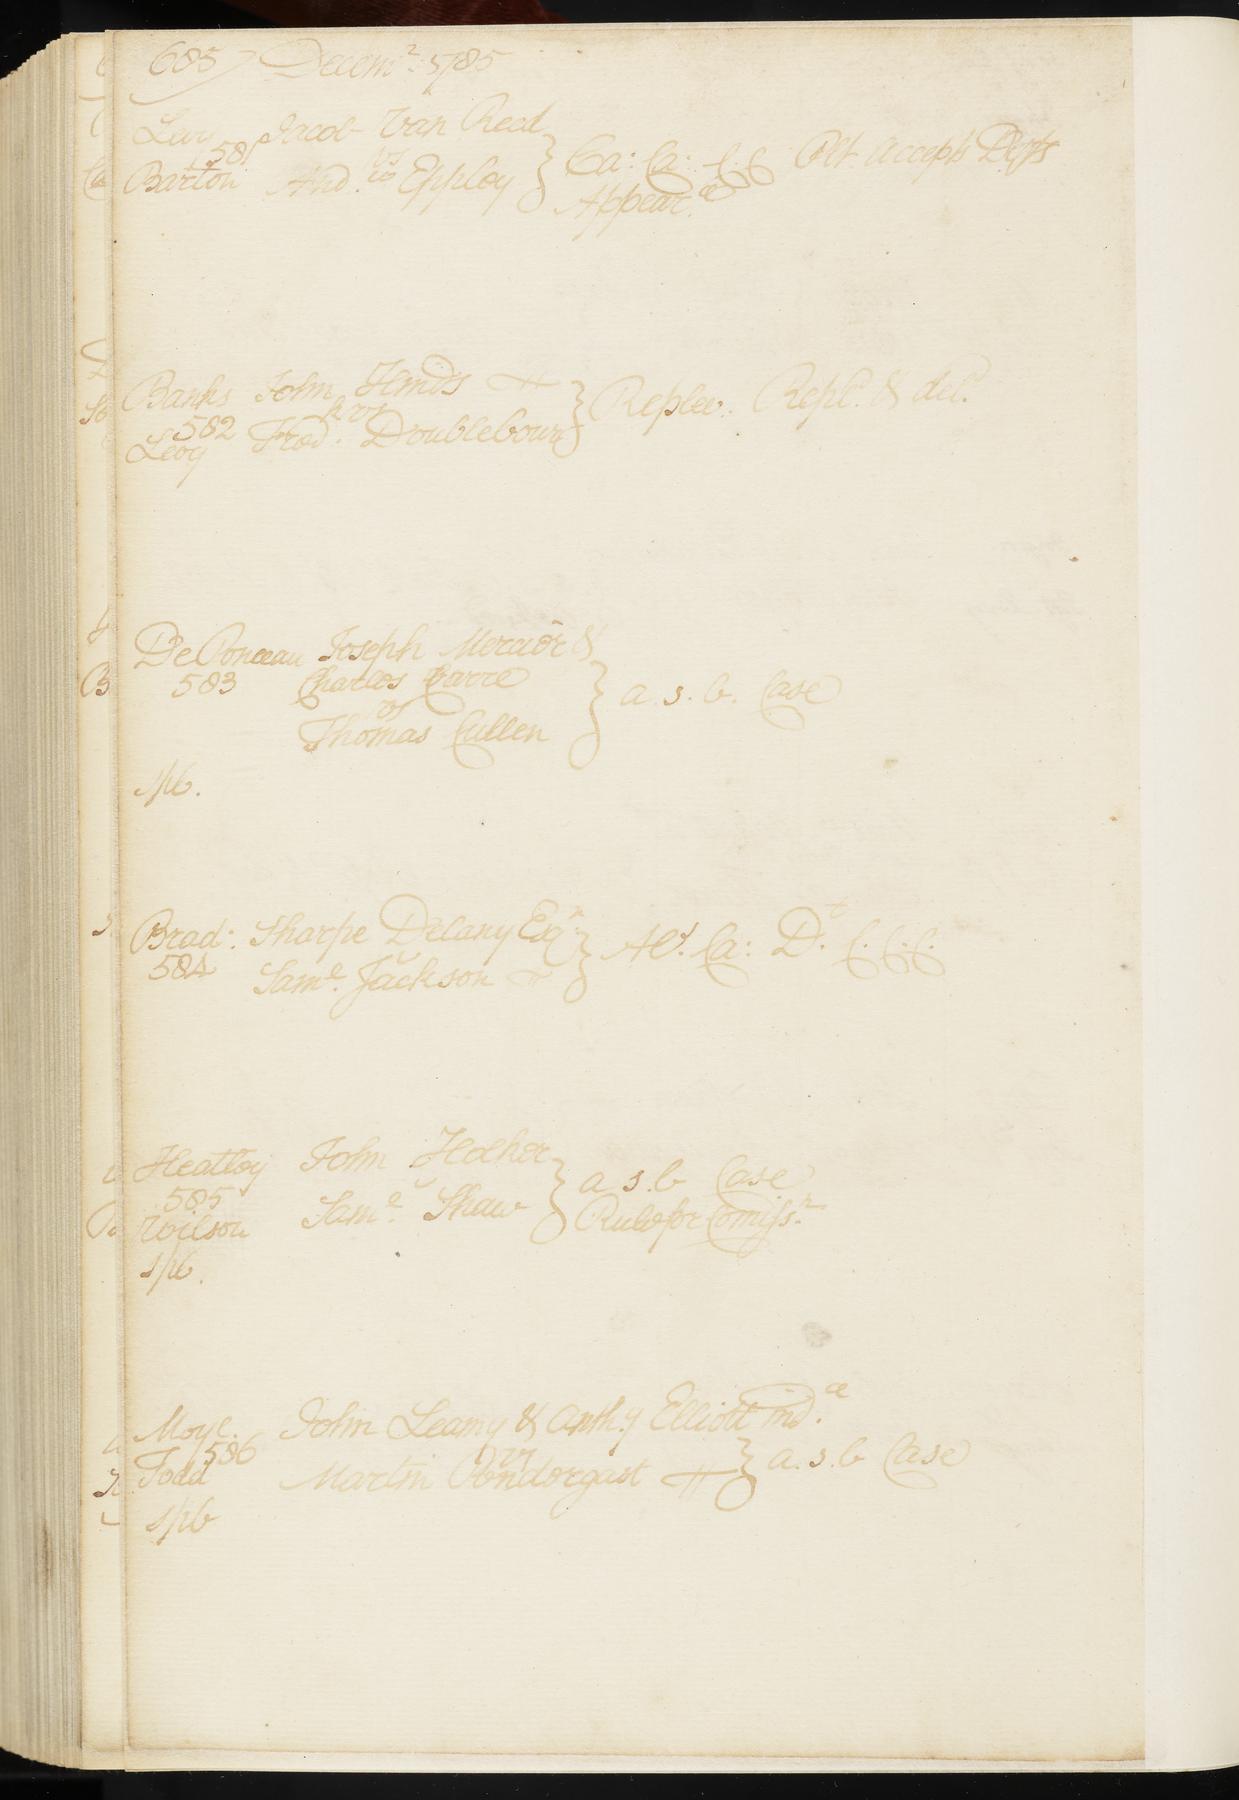 685 Decemr. 1785
Levy Jacob Van Reed
581 vs
Barton And.w Eppley } Ca: Ca: C.C Plt accepts Defts
Appear.ce
Banks John Hinds
582 vs
Levy Fred. Doublebower } Replev. Repl.d & del.d
DePonceau Joseph Mercier &
583 Charles Carre
vs
Thomas Cullen } a. s. b. Case
spb.
Brad: Sharpe Delany Esqr
584 v
Saml. Jackson } Als. Ca: Dt. C.C.C.
Heatley John Holker
585 v
Wilson Saml. Shaw } a s. b Case
Rule for Comissn.
spb.
Moyl. John Leamy & Anthy Elliott ind.ee
586 vs
Todd Martin Pendergast } a. s. b Case
spb